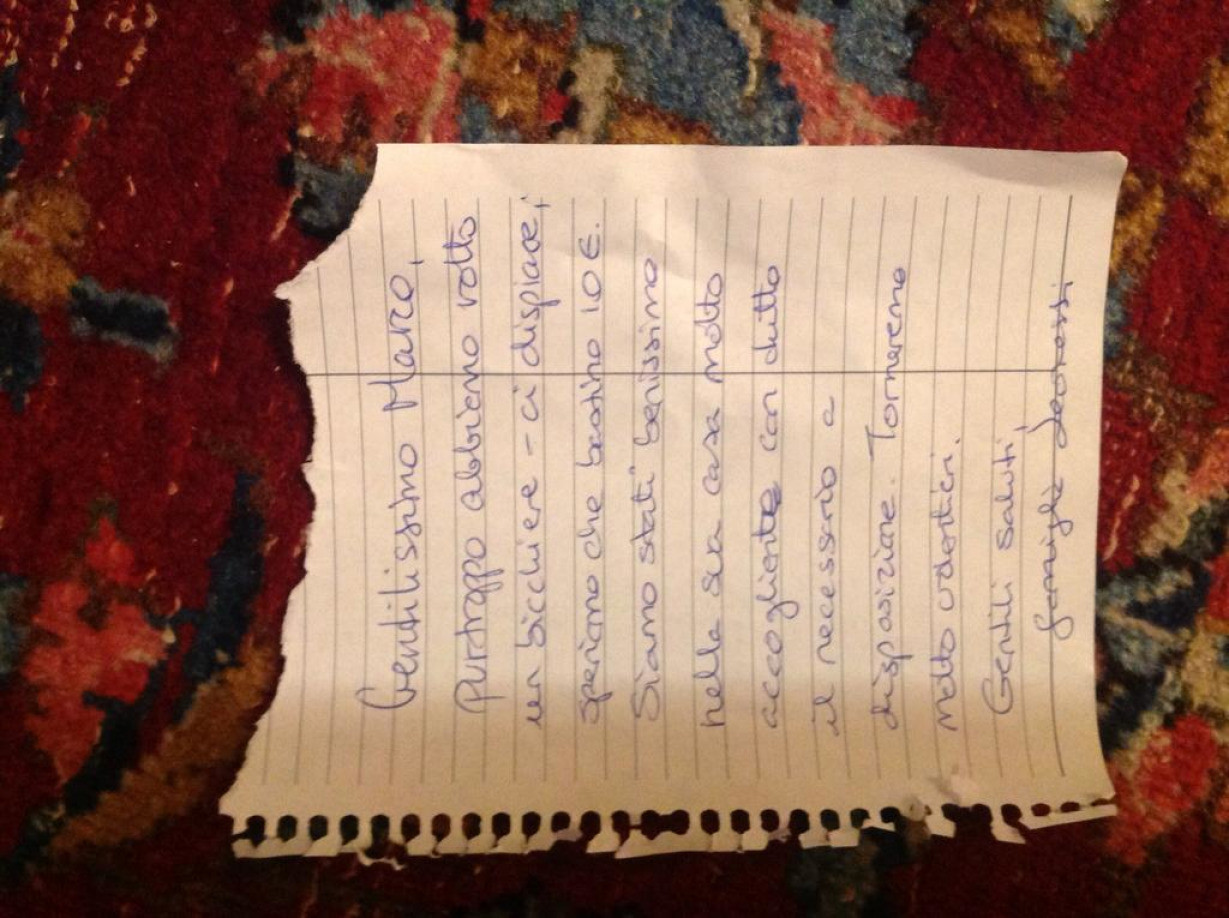 Gentilissimo Marco,
purtroppo abbiamo rotto
un bicchiere - ci dispiace,
speriamo che bastino 10 €.
Siamo stati benissimo
nella sua casa molto
accogliente con tutto
il necessario a
disposizione. Torneremo
molto volentieri.
Gentili saluti,
famiglia